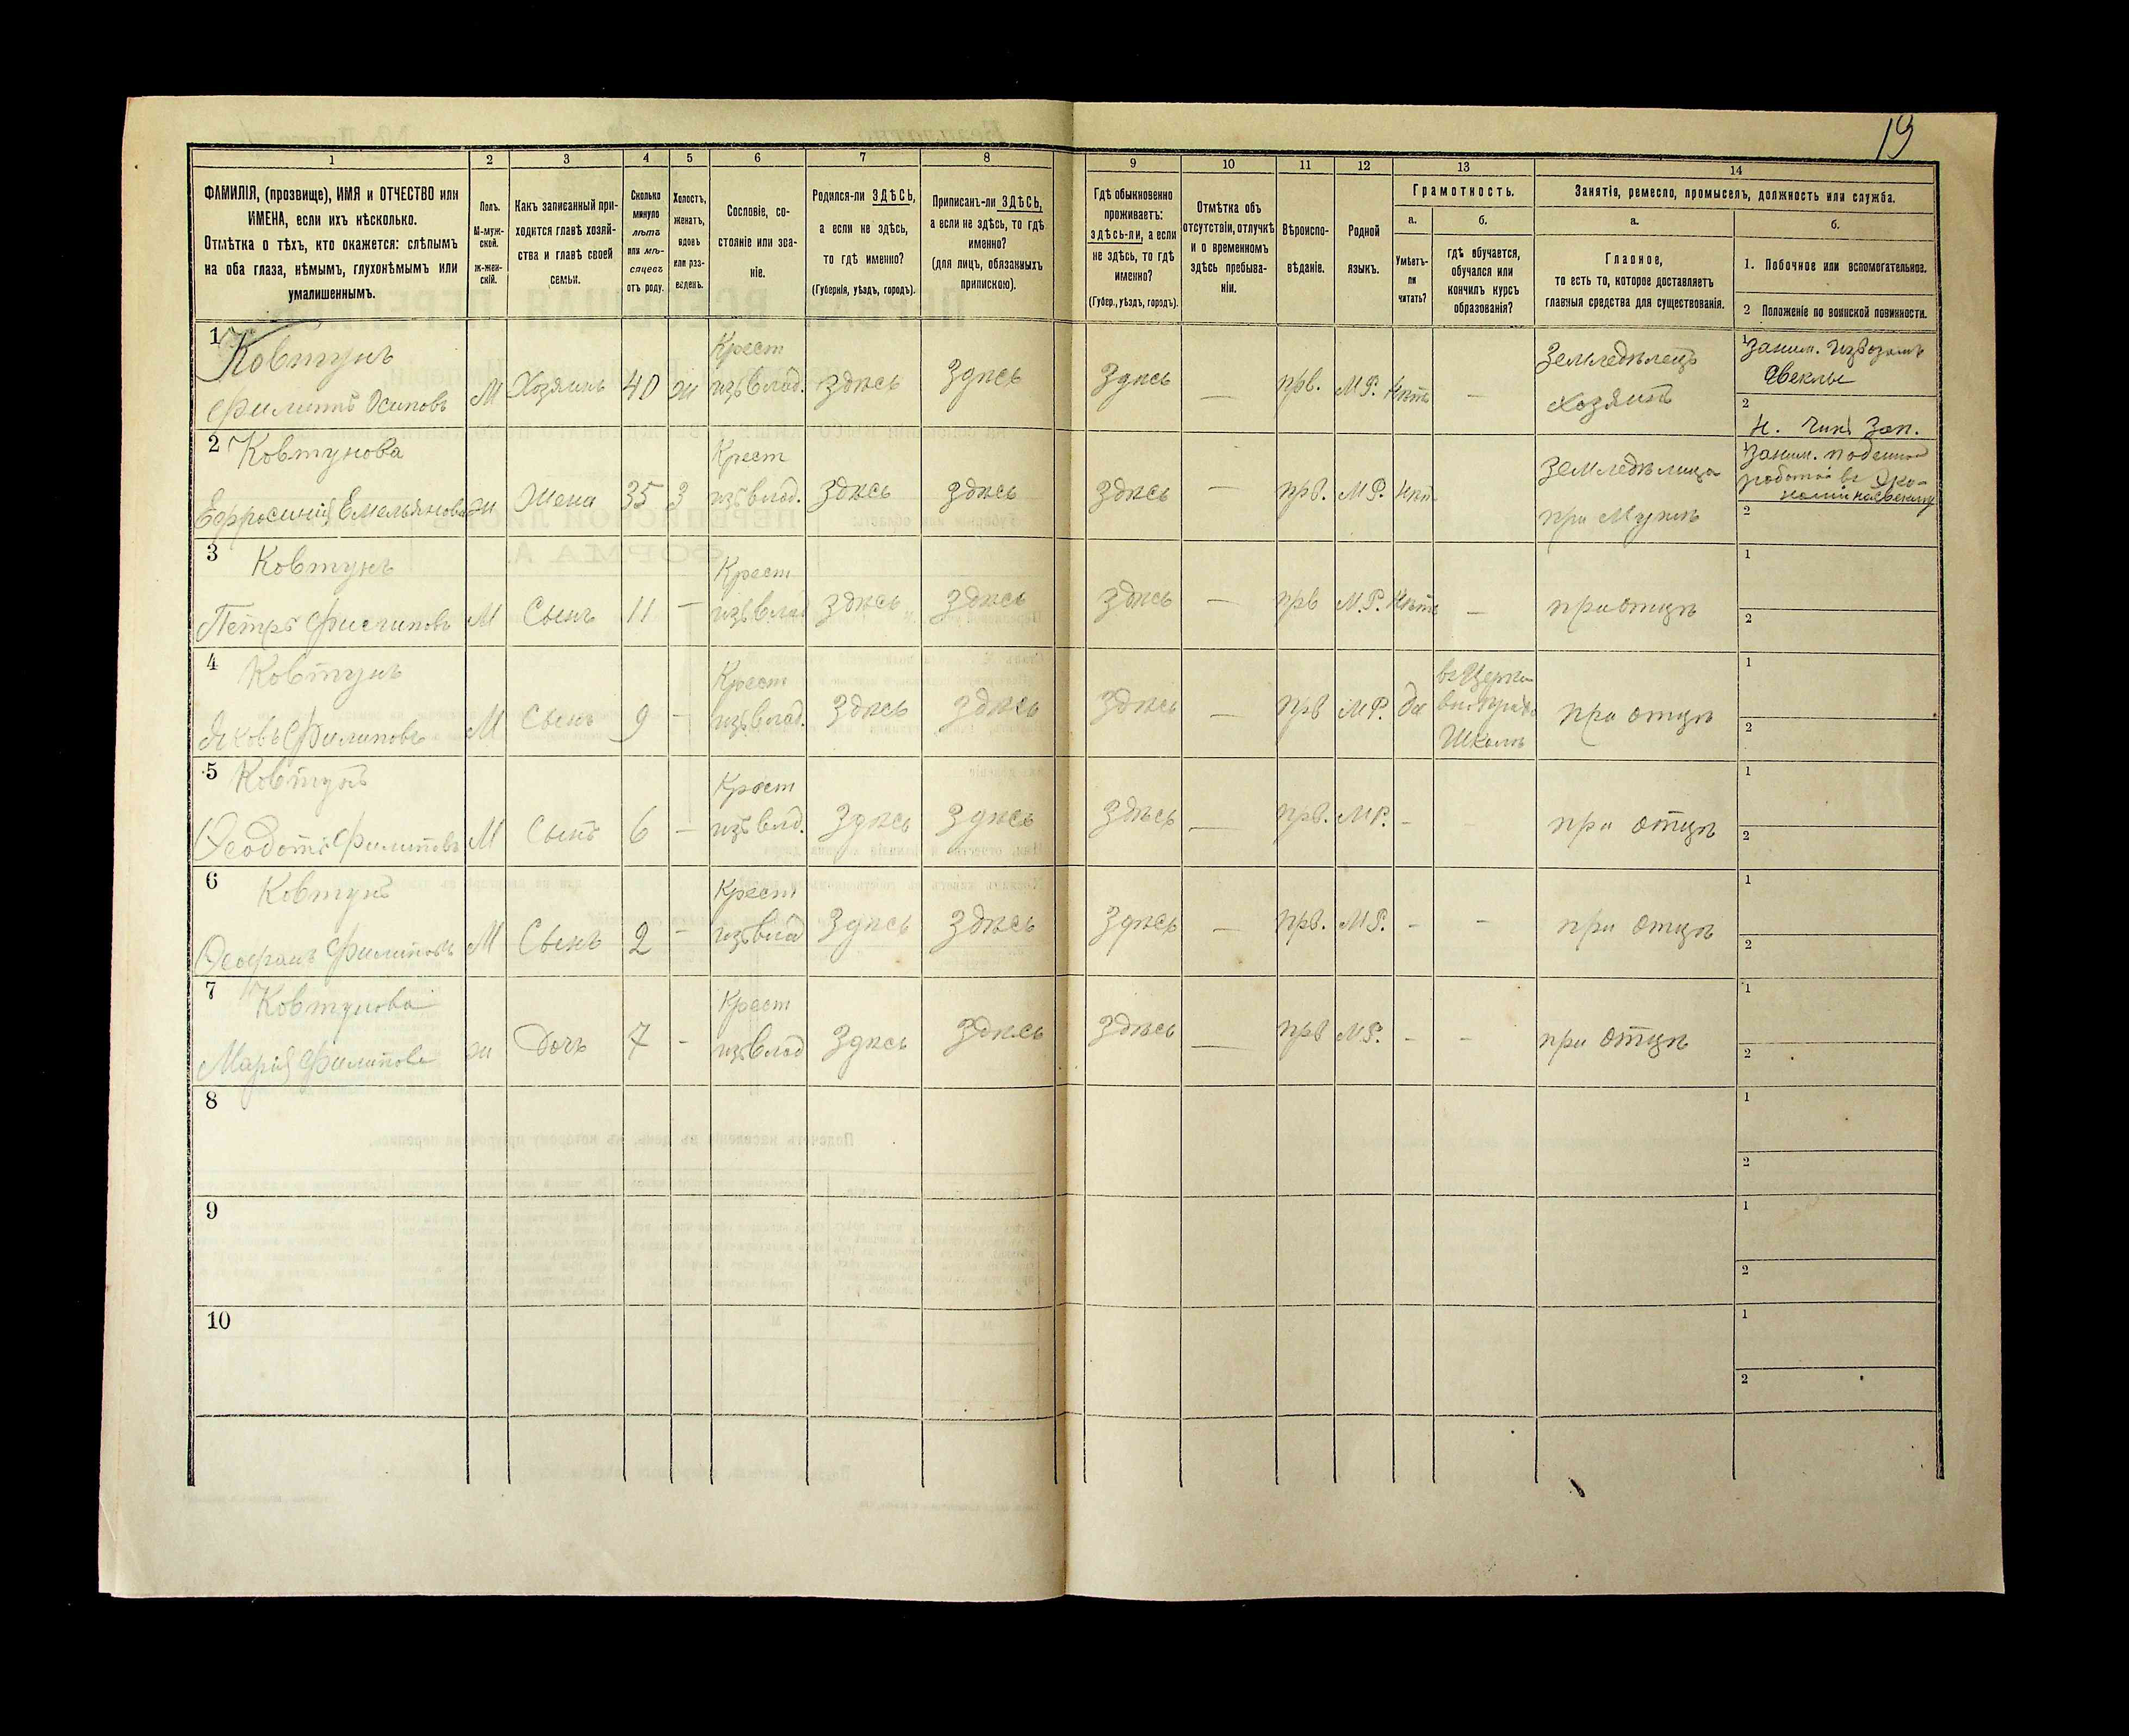 19
1 2 3 4 5 6 7 8 9 10 11 12 13 14
ФАМИЛІЯ, (прозвище), ИМЯ и ОТЧЕСТВО или
ИМЕНА, если ихъ нѣсколько.
Отмѣтка о тѣхъ, кто окажется: слѣпымъ
на оба глаза, нѣмымъ, глухонѣмымъ или
умалишеннымъ.
Полъ.
М-муж-
ской.
ж-жен-
скій.
Какъ записанный при-
ходится главѣ хозяй-
ства и главѣ своей
семьи.
Сколько
минуло
лѣтъ
или мѣ-
сяцевъ
отъ роду.
Холостъ,
женатъ,
вдовъ
или раз-
веденъ.
Сословіе, со-
стояніе или зва-
ніе.
Родился-ли ЗДѢСЬ,
а если не здѣсь,
то гдѣ именно?
(Губернія, уѣздъ, городъ).
Приписанъ-ли ЗДѢСЬ,
а если не здѣсь, то гдѣ
именно?
(для лицъ, обязанныхъ
припискою).
Гдѣ обыкновенно
проживаетъ:
здѣсь-ли, а если
не здѣсь, то гдѣ
именно?
(Губер., уѣздъ, городъ).
Отмѣтка объ
отсутствіи, отлучкѣ
и о временномъ
здѣсь пребыва-
ніи.
Вѣроиспо-
вѣданіе.
Родной
языкъ.
Грамотность.
а.
Умѣетъ-
ли
читать?
б.
гдѣ обучается,
обучался или
кончилъ курсъ
образованія?
Занятія, ремесло, промыселъ, должность или служба.
а.
Главное,
то есть то, которое доставляетъ
главныя средства для существованія.
б.
1. Побочное или вспомогательное.
2 Положеніе по воинской повинности.
1 Ковтунъ
Филиппъ Осиповъ М Хозяинъ 40 ж Крест изъ влад. здѣсь здѣсь здѣсь — прв. М.Р. Нѣтъ —
Земледѣлецъ
Хозяинъ
1 Заним. Извозомъ
Свеклы
2
Н. Чинъ Зап.
2 Ковтунова
Ефросинія Емельянова ж Жена 35 З Крест изъ влад. здѣсь здѣсь здѣсь — прв. М.Р. Нѣт
Земледѣлица
при Мужѣ
1 Заним. поденной
работой въ Эко-
номіи на свеклу
2
3 Ковтунъ
Петръ Филиповъ М Сынъ 11 — Крест изъ влад здѣсь здѣсь здѣсь — прв М.Р. Нѣтъ — при отцѣ
1
2
4 Ковтунъ
Яковъ Филиповъ М Сынъ 9 — Крест изъ влад. здѣсь здѣсь здѣсь — прв М.Р. да
Школѣ
при отцѣ
1
2
5 Ковтунъ
Ѳеодотъ Филиповъ М Сынъ 6 — Крест изъ влд. здѣсь здѣсь здѣсь — прв. М.Р. — — при отцѣ
1
2
6 Ковтунъ
Ѳеофанъ Филиповъ М Сынъ 2 — Крест изъ влад здѣсь здѣсь здѣсь — прв. М.Р. — — при отцѣ
1
2
7 Ковтунова
Марія Филипова ж Дочь 7 — Крест изъ влад здѣсь здѣсь здѣсь — прв М.Р. — — при отцѣ
1
2
8
1
2
9
1
2
10
1
2